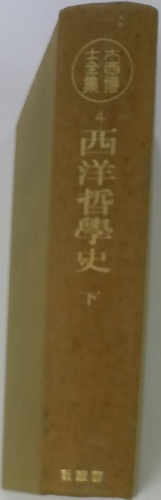 大西博
士全集
4
西洋哲學史
下
警醒社